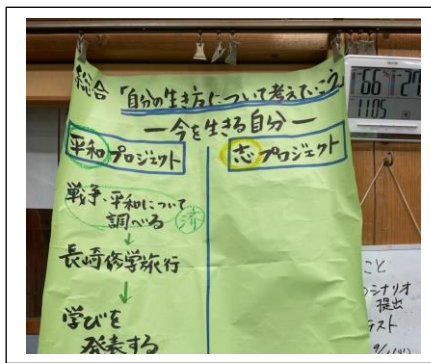 総合「自分の生き方について考えていこう」
―今を生きる自分―
平和プロジェクト
戦争、平和について
調べる
済
↓
長崎修学旅行
↓
学びを
発表する
志プロジェクト
66
27
1105
こと
シナリオ
提出
テスト